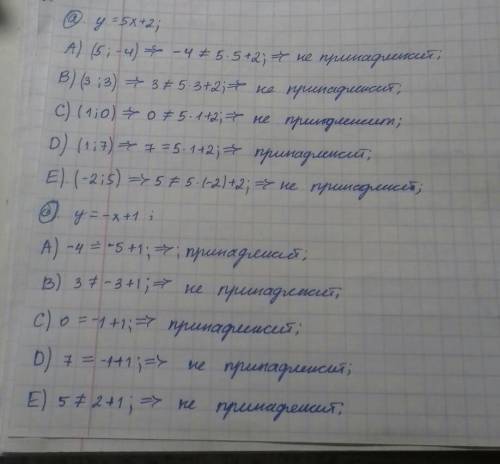 а) y = 5x+2;
A) (5; -4) => -4 ≠ 5·5+2; => не принадлежит;
B) (3; 3) => 3 ≠ 5·3+2; => не принадлежит;
C) (1; 0) => 0 ≠ 5·1+2; => не принадлежит;
D) (1; 7) => 7 = 5·1+2; => принадлежит;
E) (-2; 5) => 5 ≠ 5·(-2)+2; => не принадлежит;
б) y = -x+1;
A) -4 = -5+1; => ; принадлежит;
B) 3 ≠ -3+1; => не принадлежит;
C) 0 = -1+1; => принадлежит;
D) 7 = -1+1; => не принадлежит;
E) 5 ≠ 2+1; => не принадлежит;